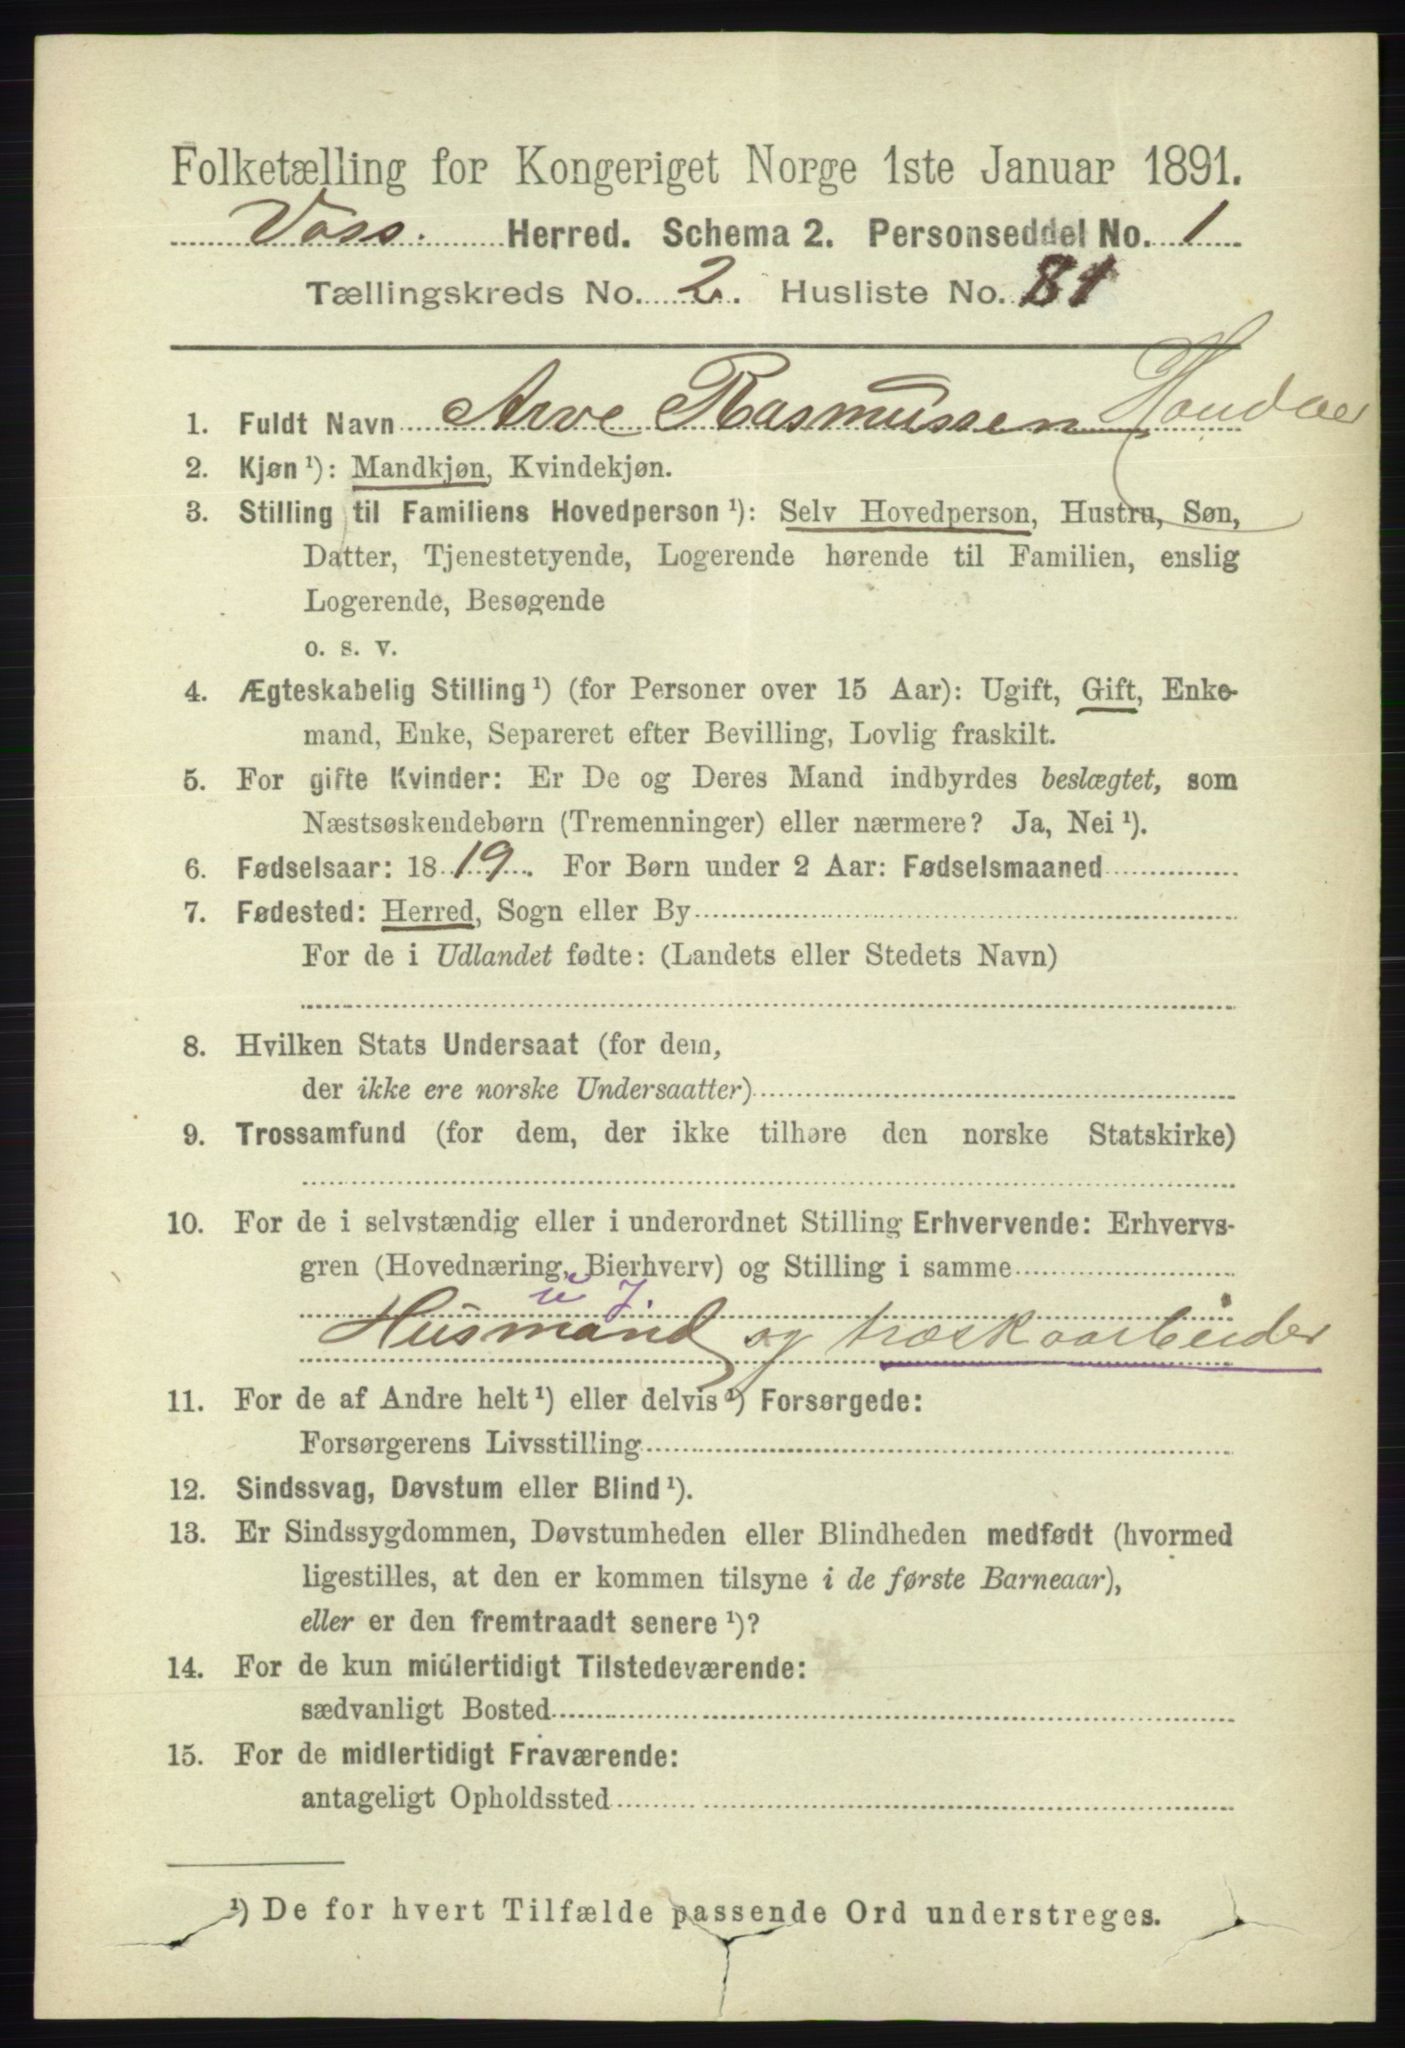 Folketælling for Kongeriget Norge 1ste Januar 1891.
Voss. Herred. Schema 2. Personseddel No. 1
Tællingskreds No. 2. Husliste No. 81
1. Fuldt Navn Arve Rasmussen
2. Kjøn ¹): Mandkjøn, Kvindekjøn.
3. Stilling til Familiens Hovedperson ¹): Selv Hovedperson, Hustru, Søn,
Datter, Tjenestetyende, Logerende hørende til Familien, enslig
Logerende, Besøgende
o. s. v.
4. Ægteskabelig Stilling ¹) (for Personer over 15 Aar): Ugift, Gift, Enke-
mand, Enke, Separeret efter Bevilling, Lovlig fraskilt.
5. For gifte Kvinder: Er De og Deres Mand indbyrdes beslægtet, som
Næstsøskendebørn (Tremenninger) eller nærmere? Ja, Nei ¹).
6. Fødselsaar: 1819. For Børn under 2 Aar: Fødselsmaaned
7. Fødested: Herred, Sogn eller By
For de i Udlandet fødte: (Landets eller Stedets Navn)
8. Hvilken Stats Undersaat (for dem,
der ikke ere norske Undersaatter)
9. Trossamfund (for dem, der ikke tilhøre den norske Statskirke)
10. For de i selvstændig eller i underordnet Stilling Erhvervende: Erhvervs-
gren (Hovednæring, Bierhverv) og Stilling i samme
u J.
Husmand og træskoarbeider
11. For de af Andre helt ¹) eller delvis ¹) Forsørgede:
Forsørgerens Livsstilling
12. Sindssvag, Døvstum eller Blind ¹).
13. Er Sindssygdommen, Døvstumheden eller Blindheden medfødt (hvormed
ligestilles, at den er kommen tilsyne i de første Barneaar),
eller er den fremtraadt senere ¹)?
14. For de kun midlertidigt Tilstedeværende:
sædvanligt Bosted
15. For de midlertidigt Fraværende:
antageligt Opholdssted
¹) De for hvert Tilfælde passende Ord understreges.